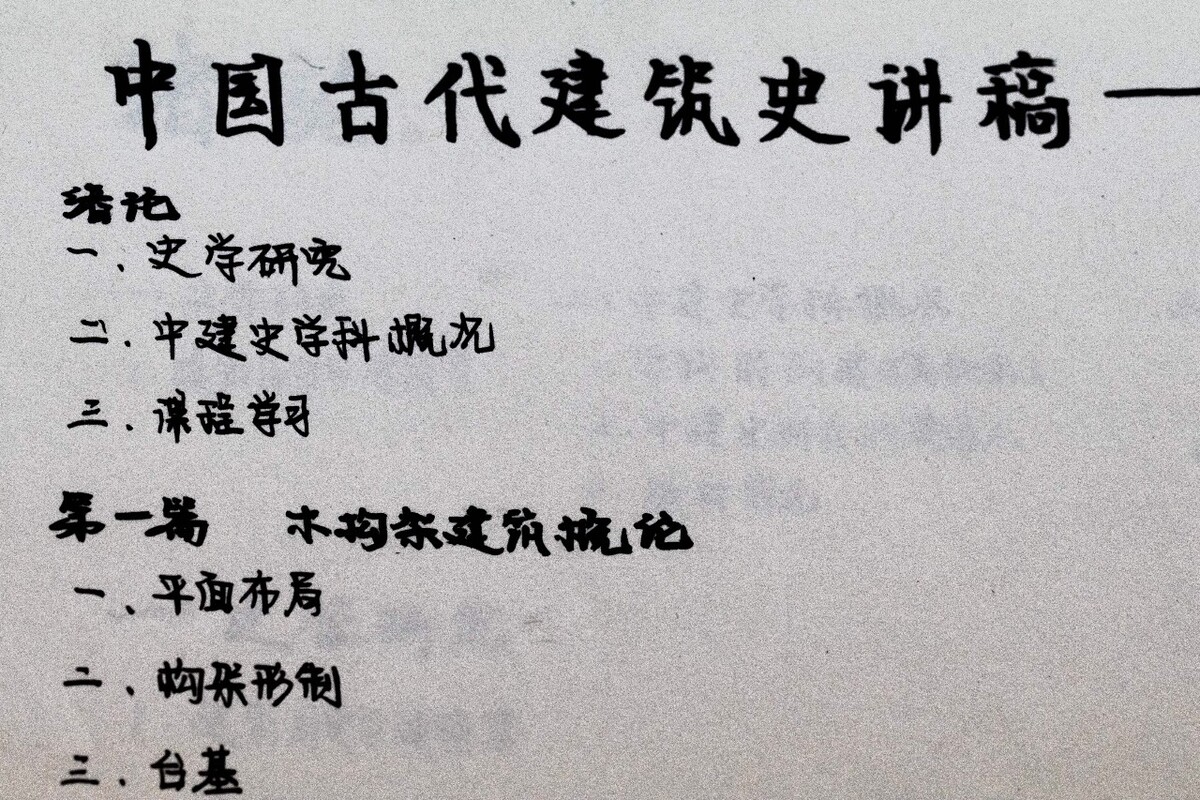 中国古代建筑史讲稿—
绪论
一、史学研究
二、中建史学科概况
三、课程学习
第一篇 木构架建筑概论
一、平面布局
二、构架形制
三、台基